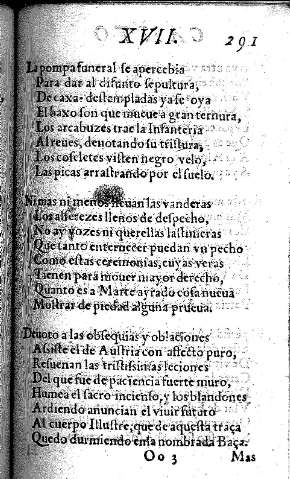 XVII. 291
La pompa funeral se apercebia
Para dar al difunto sepultura,
De caxas destempladas ya se oya
El baxo son que mueue a gran ternura,
Los arcabuzes trae la Infanteria
Al reues, denotando su tristura,
Los coseletes visten negro velo,
Las picas arrastrando por el suelo.
Ni mas ni menos lleuan las vanderas
Los alferezes llenos de despecho,
No ay vozes ni querellas lastimeras
Que tanto enternecer puedan vn pecho
Como estas ceremonias, cuyas veras
Tienen para mouer mayor derecho,
Quanto es a Marte ayrado cosa nueua
Mostrar de piedad alguna prueua.
Deuoto a las obsequias y oblaciones
Assiste el de Austria con affecto puro,
Resuenan las tristissimas leciones
Del que fue de paciencia fuerte muro,
Humea el sacro incienso, y los blandones
Ardiendo anuncian el viuir futuro
Al cuerpo Illustre, que de aquesta traça
Quedo durmiendo en la nombrada Baça.
Oo 3 Mas